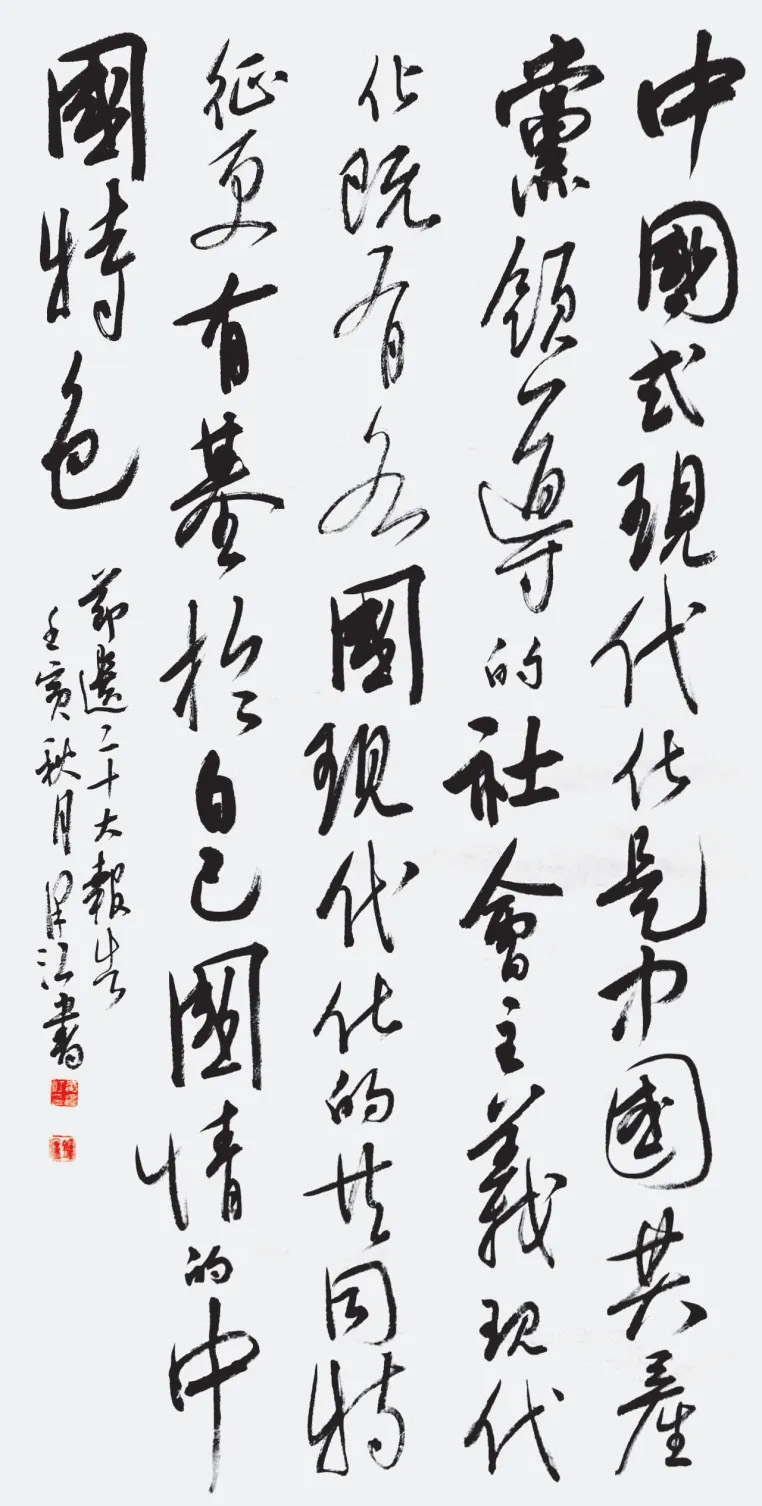 中國式現代化是中國共產
黨領導的社會主義現代
化既有各國現代化的共同特
征更有基於自己國情的中
國特色
節選二十大報告
壬寅秋月 江書